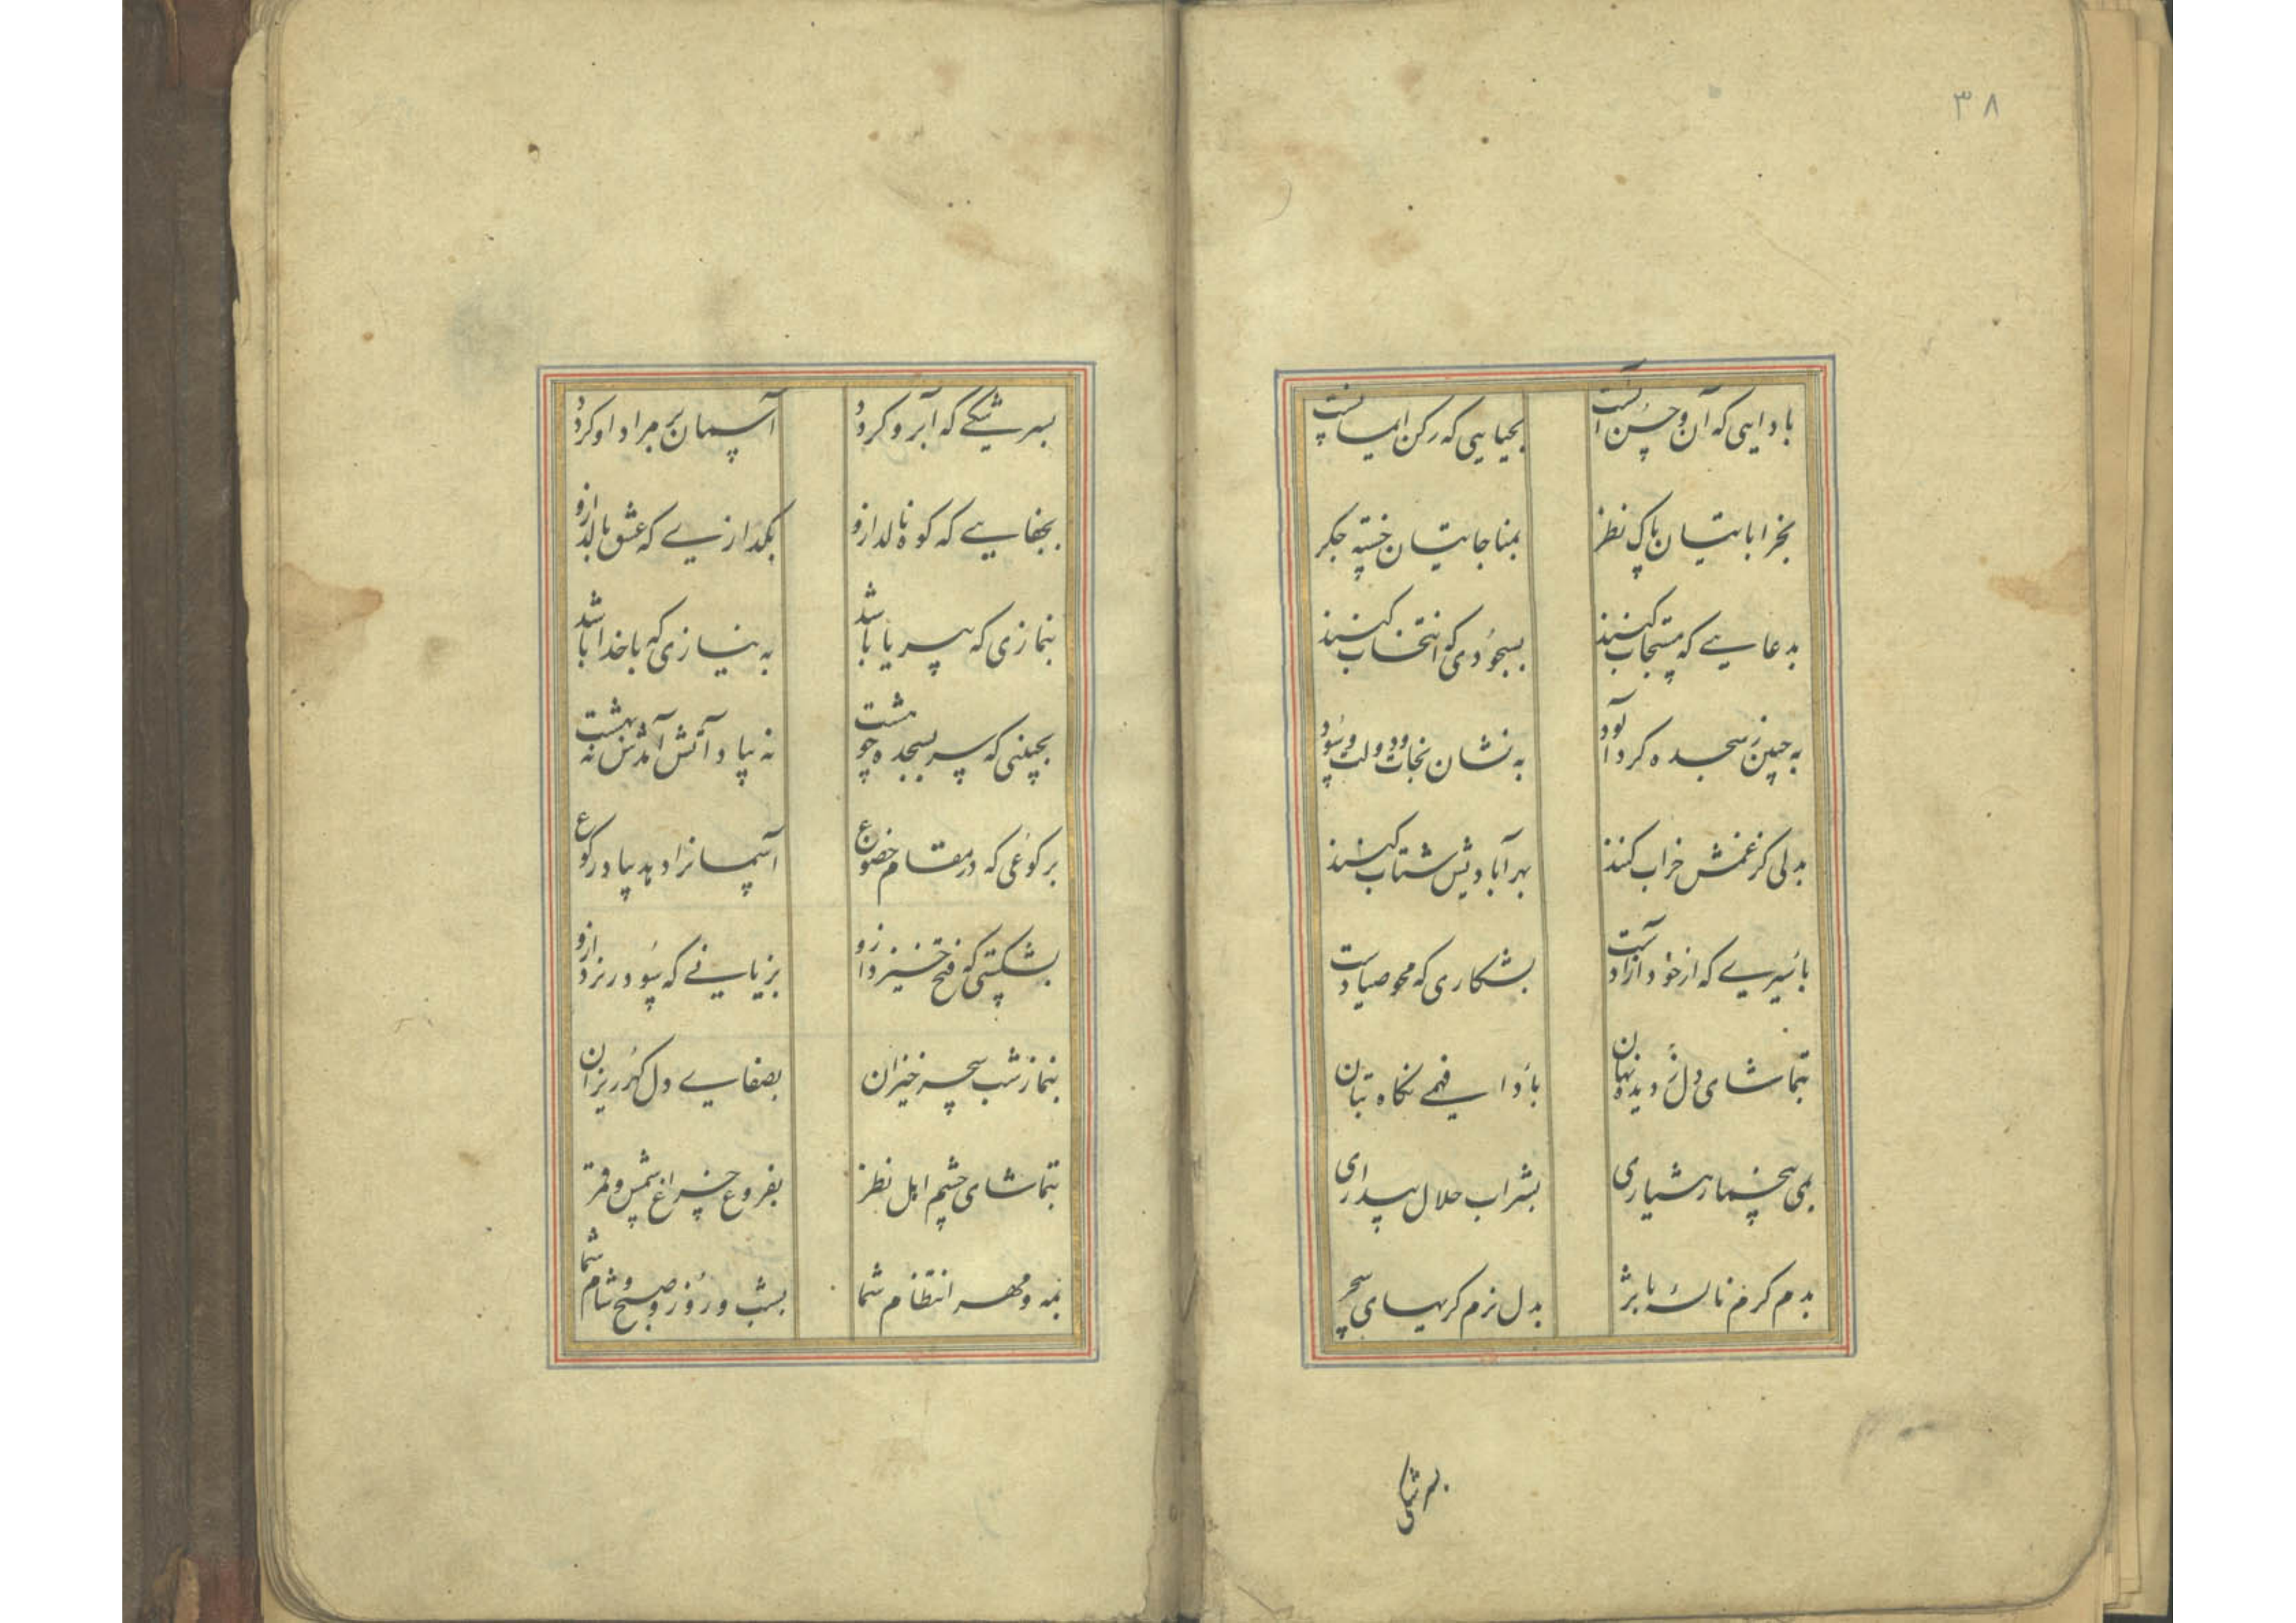 ۳۸
باداایی که آن و حسن آنست
بحیایی که رکن ایمانست
بخراباتیان پاک نظر
بمناجاتیان خسته جکر
بدعایی که مستجاب کنند
بسجودی که انتخاب کنند
به جبین ز سجده کرد آلود
به نشان نجات و دولت و سود
بدلی کز غمش خراب کنند
بهر آبادیش شتاب کنند
باسیری که از خود آزادست
بشکاری که محو صیادست
بتماشای دل ز دیده نهان
باادا فهمی نکاه بتان
بمی بیخمار هشیاری
بشراب حلال بیداری
بدم کرم نالهٔ با اثر
بدل نرم کریهای سحر
بسرشکی
بسرشکی که آبرو کردد
آسمان بر مراد او کردد
بجفایی که کوه نالد ازو
بکدازنی که عشق بالد ازو
بنمازی که بی ریا باشد
به نیازی که با خدا باشد
بجبینی که سر بسجده چو هشت
نه بیاد آتش آمدش نه بهشت
برکوعی که در مقام خضوع
آسمانرا دهد بیاد رکوع
بشکستی که فتح خیزد ازو
بزیانی که سود ریزد ازو
بنماز شب سحر خیزان
بصفای دل کهر ریزان
بتماشای چشم اهل نظر
بفروغ چراغ شمس و قمر
بمه و مهر انتظام شما
بشب و روز و صبح و شام شما